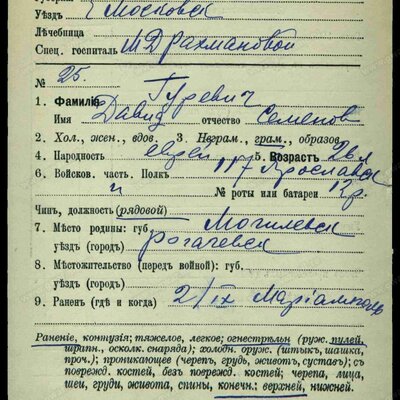 Уѣздъ г. Московск
Лѣчебница
Спец. госпиталь М Д Рахмановой
№ 25.
1. Фамилія Гуревич
Имя Давид отчество Семенов
2. Хол., жен., вдов. 3. Неграм., грам., образов.
4. Народность еврей 5. Возрастъ 28 л
6. Войсков. часть. Полк 117 Ярославск
п № роты или батареи 12 р.
Чинъ, должность (рядовой)
7. Мѣсто родины: губ. Могилевск
уѣздъ (городъ) Рогачевск
8. Мѣстожительство (передъ войной): губ.
уѣздъ (городъ)
9. Раненъ (гдѣ и когда) 2/IX Маріамполь
Раненіе, контузія; тяжелое, легкое; огнестрѣльн (руж. пулей,
шрапн., осколк. снаряда); холодн. оруж. (штыкъ, шашка,
проч.); проникающее (черепъ, грудь, животъ, суставъ); съ
поврежд. костей, безъ поврежд. костей; черепа, лица,
шеи, груди, живота, спины, конечн.: верхней, нижней.